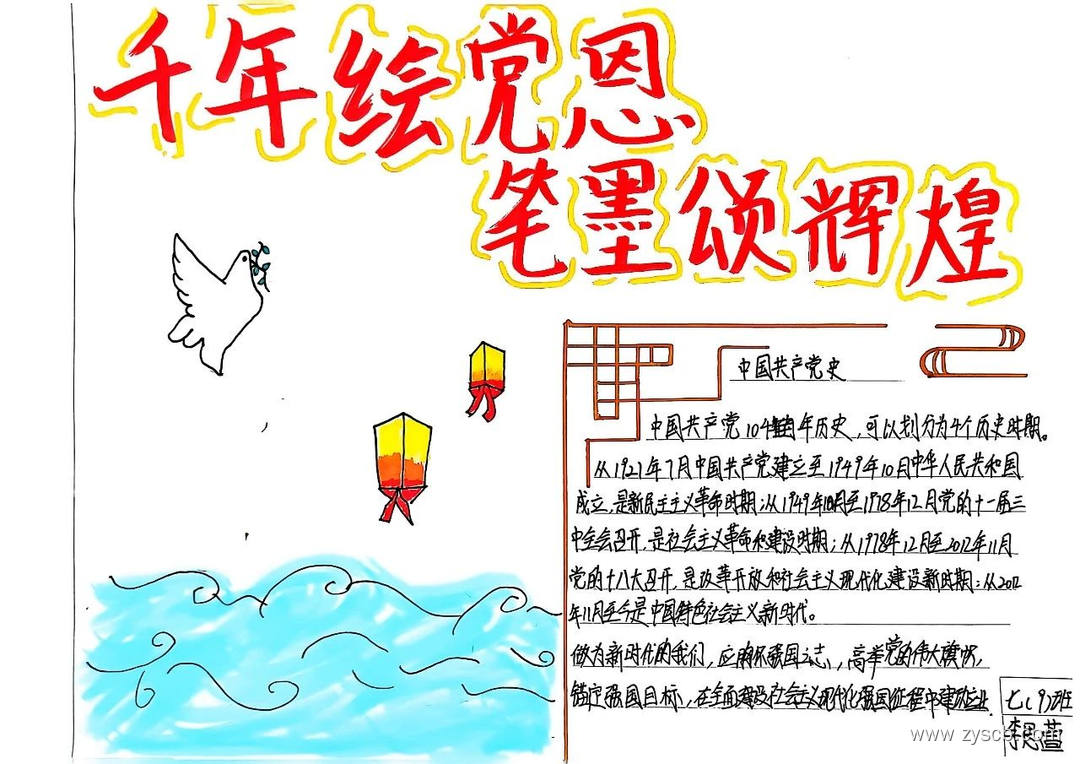 千年绘党恩
笔墨颂辉煌
中国共产党史
中国共产党104年历史，可以划分为4个历史时期。
从1921年7月中国共产党建立至1949年10月中华人民共和国
成立，是新民主主义革命时期；从1949年10月至1978年12月党的十一届三
中全会召开，是社会主义革命和建设时期；从1978年12月至2012年11月
党的十八大召开，是改革开放和社会主义现代化建设新时期；从2012
年11月至今是中国特色社会主义新时代。
做为新时代的我们，应胸怀强国之志，高举党的伟大旗帜，
锚定强国目标，在全面建设社会主义现代化强国征程中建功立业
七（9）班
李思蓝
www.zyscb.com